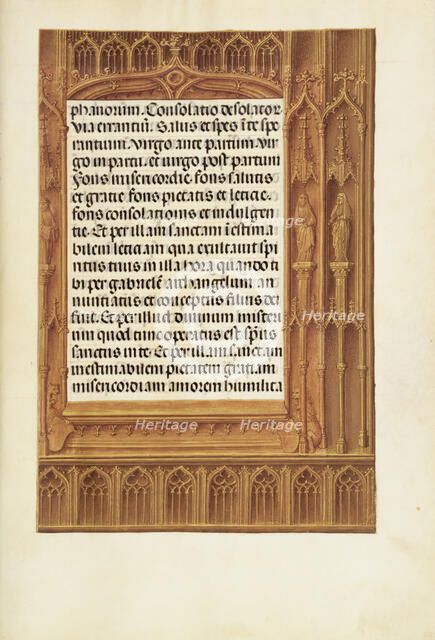 phanorum. Consolatio desolator.
Via errantiu. Salus et spes i te spe
rantium. Virgo ante partum vir
go in partu. et virgo post partum
Fons misericordie. fons salutis
et gratie. fons pietatis et leticie.
fons consolationis et indulgen
tie. Et per illam sanctam i estima
bilem leticiam qua exultavit spi
ritus tuus in illa hora quando ti
bi per gabriele archangelum an
nuntiatus et conceptus filius dei
fuit. Et per illud divinum misteri
um quod tunc operatus est spus
sanctus in te. Et per illam sanctam
inestimabilem pietatem gratiam
misericordiam amorem humilita
Heritage
Heritage
Heritage
Heritage
Heritage
Heritage